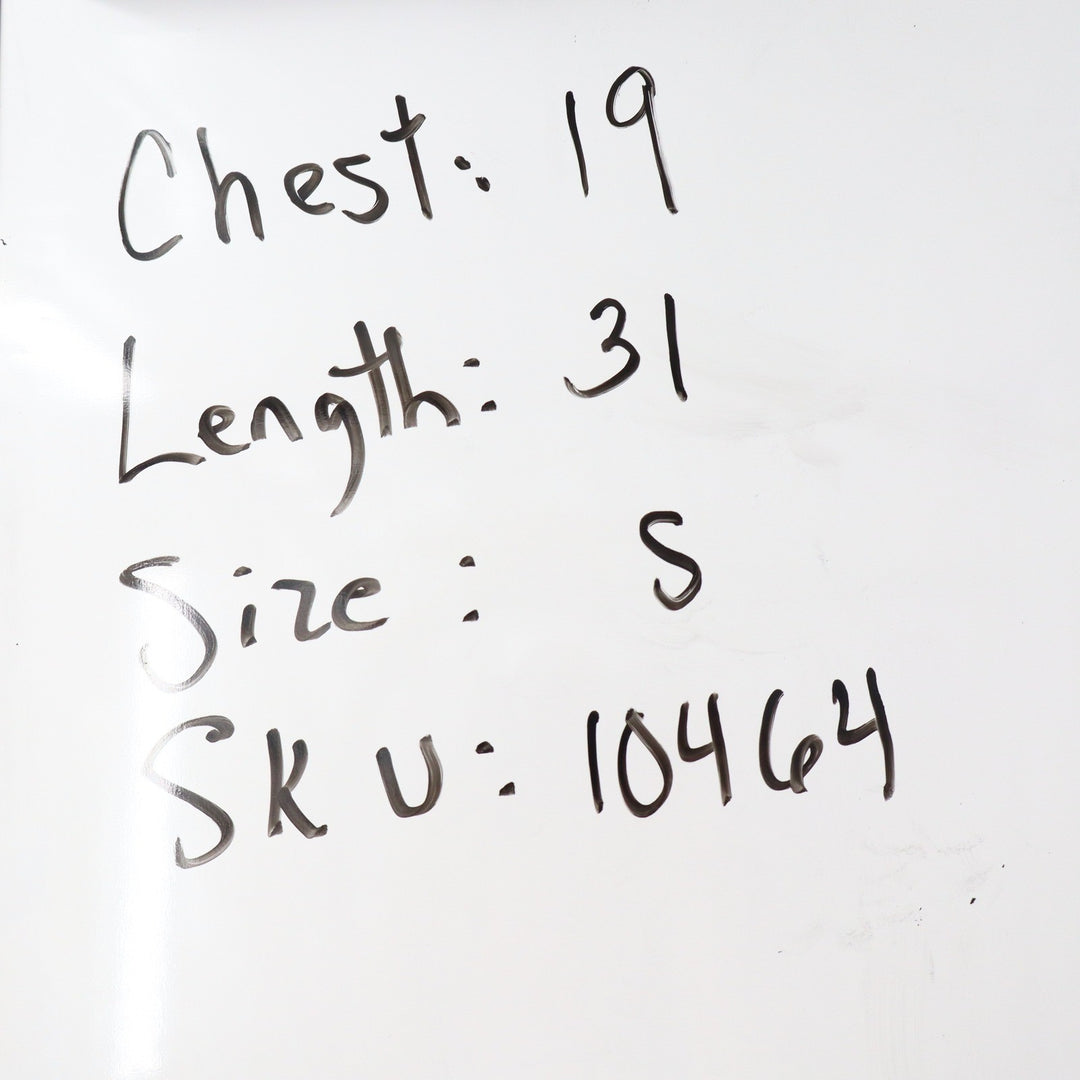 Chest: 19
Length: 31
Size: S
SKU: 10464